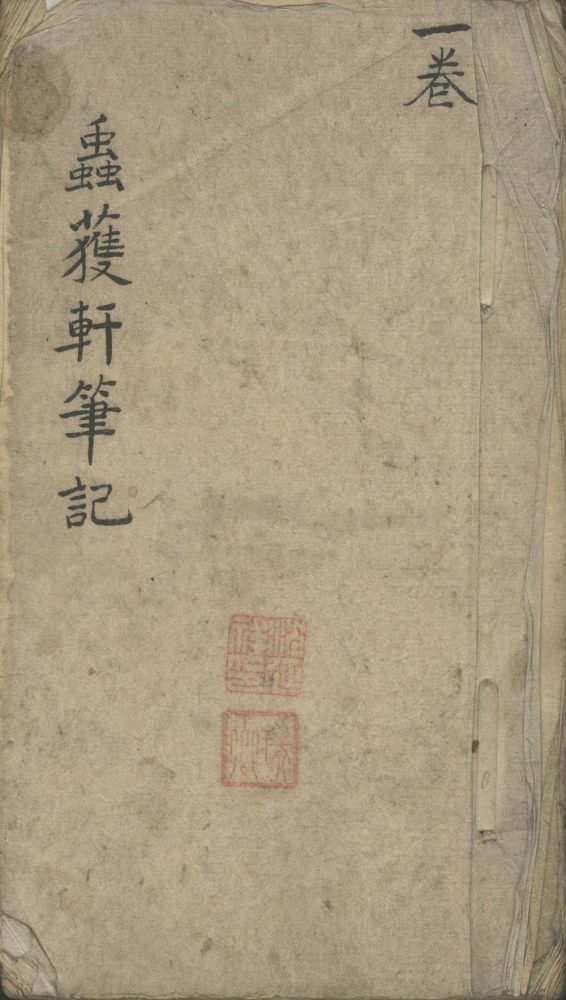 一卷
蟲獲軒筆記